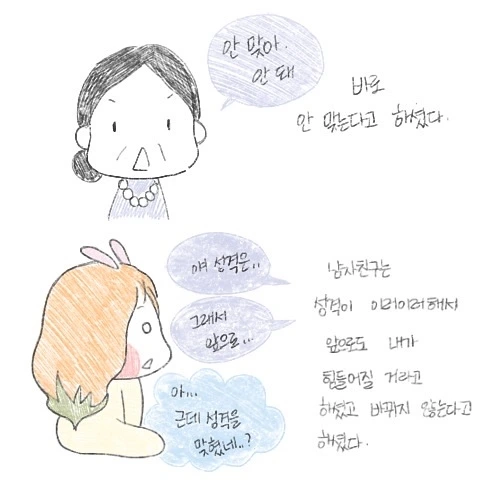 안 맞아.
안 돼
바로
안 맞는다고 하셨다.
얘 성격은..
그래서
앞으로...
남자친구는
성격이 이러이러해서
앞으로도 내가
힘들어질 거라고
하셨고 바뀌지 않는다고
하셨다.
아...
근데 성격을
맞혔네..?